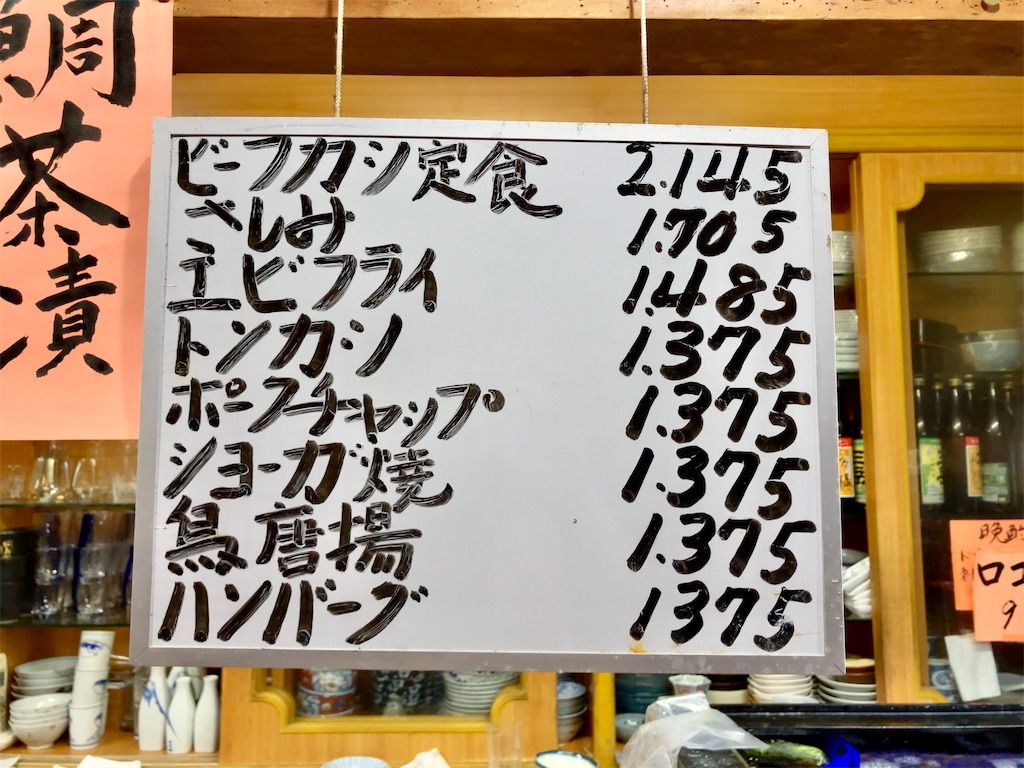 鯛茶漬
ビーフカツ定食 2.145
〃しょうみ 1.705
エビフライ 1.485
トンカツ 1.375
ポークチャップ 1.375
ショーガ焼 1.375
鳥唐揚 1.375
ハンバーグ 1375
晩酌
ロコ
9